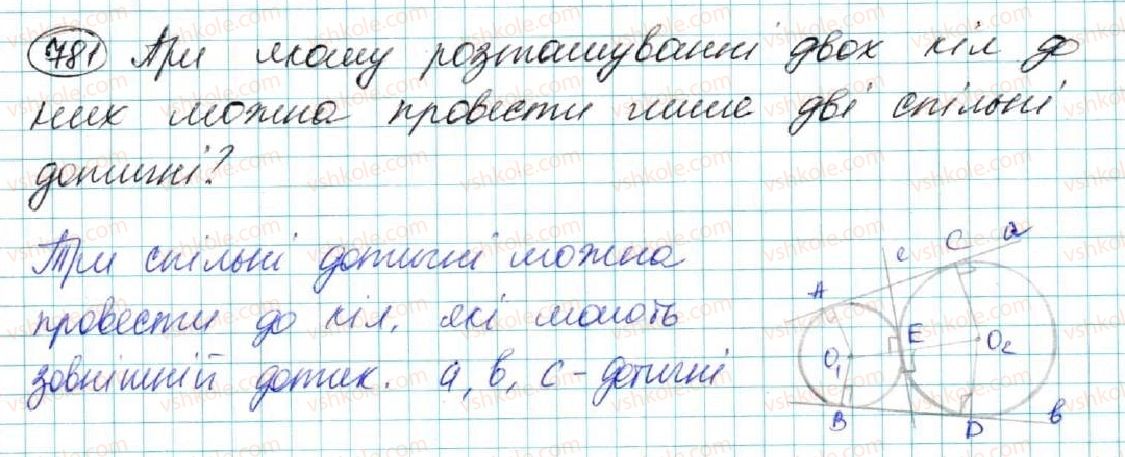 781 При якому розташуванні двох кіл до
них можна провести лише дві спільні
дотичні?
Три спільні дотичні можна
провести до кіл, які мають
зовнішній дотик. a, b, c - дотичні
A c C a
E
O1 O2
B D b